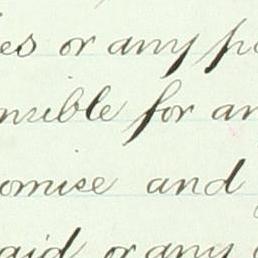 es or any p
nsible for an
omise and
aid or any